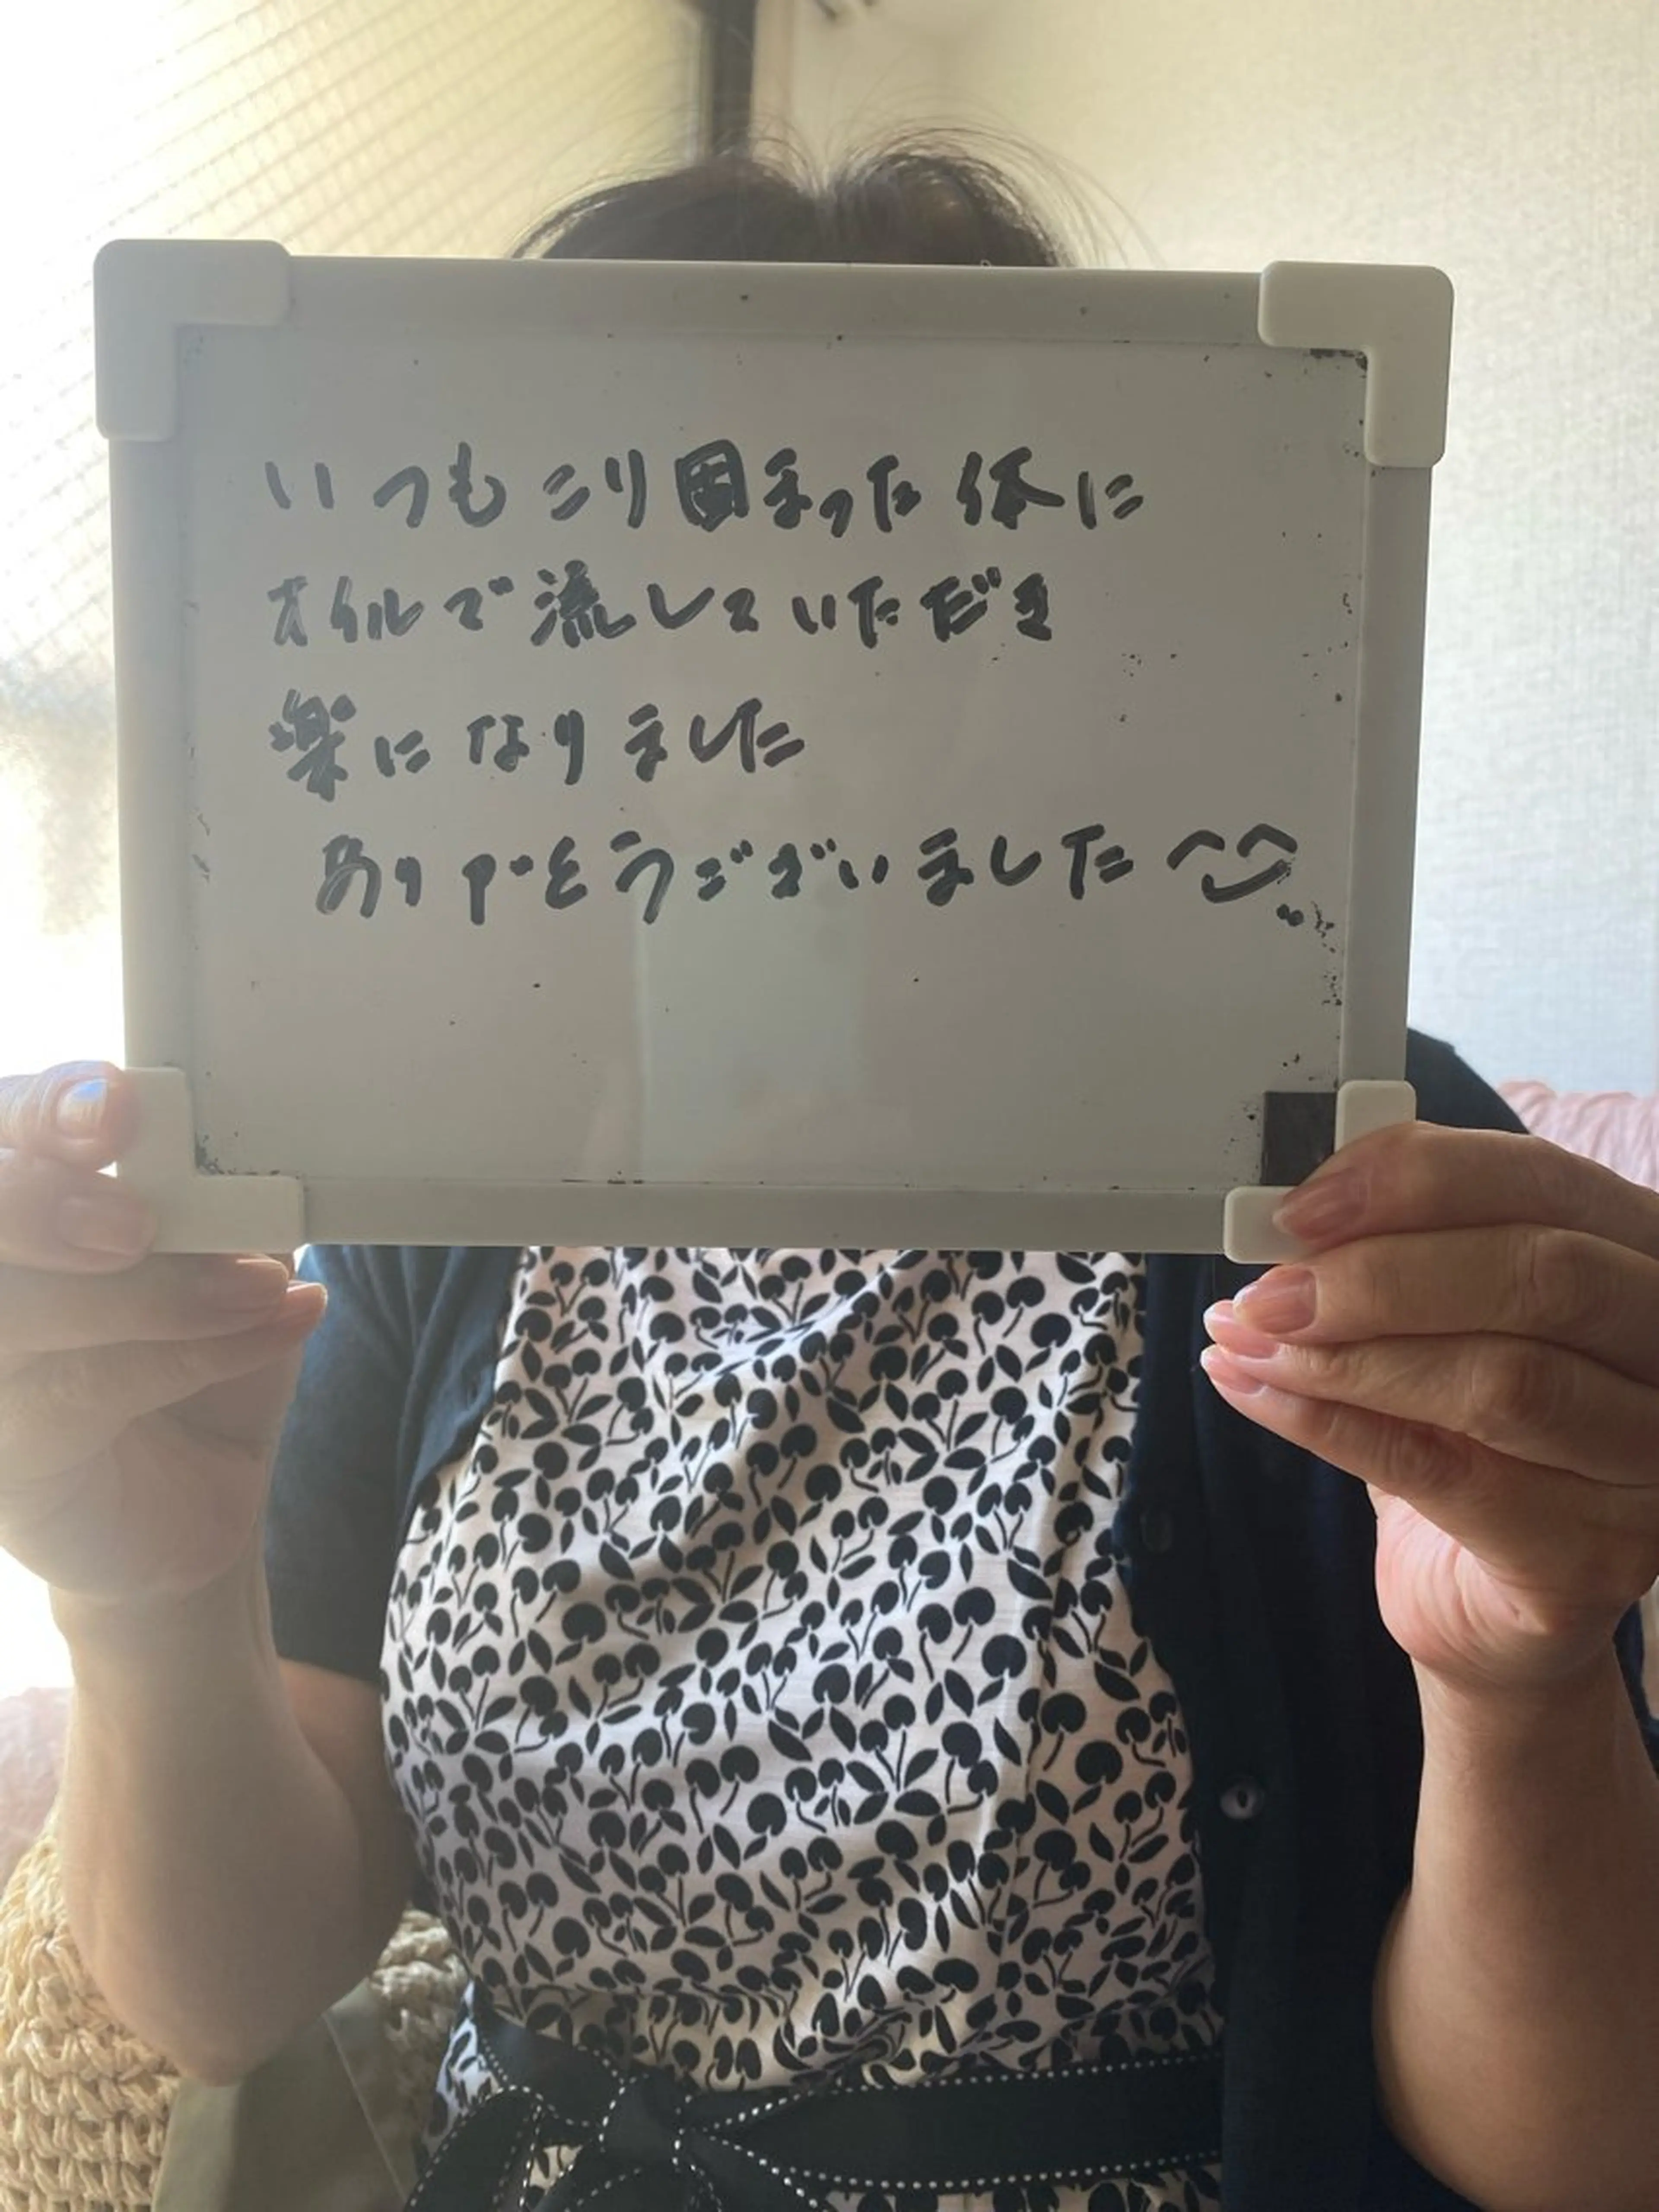 いつもこり固まった体に
オイルで流していただき
楽になりました
ありがとうございました